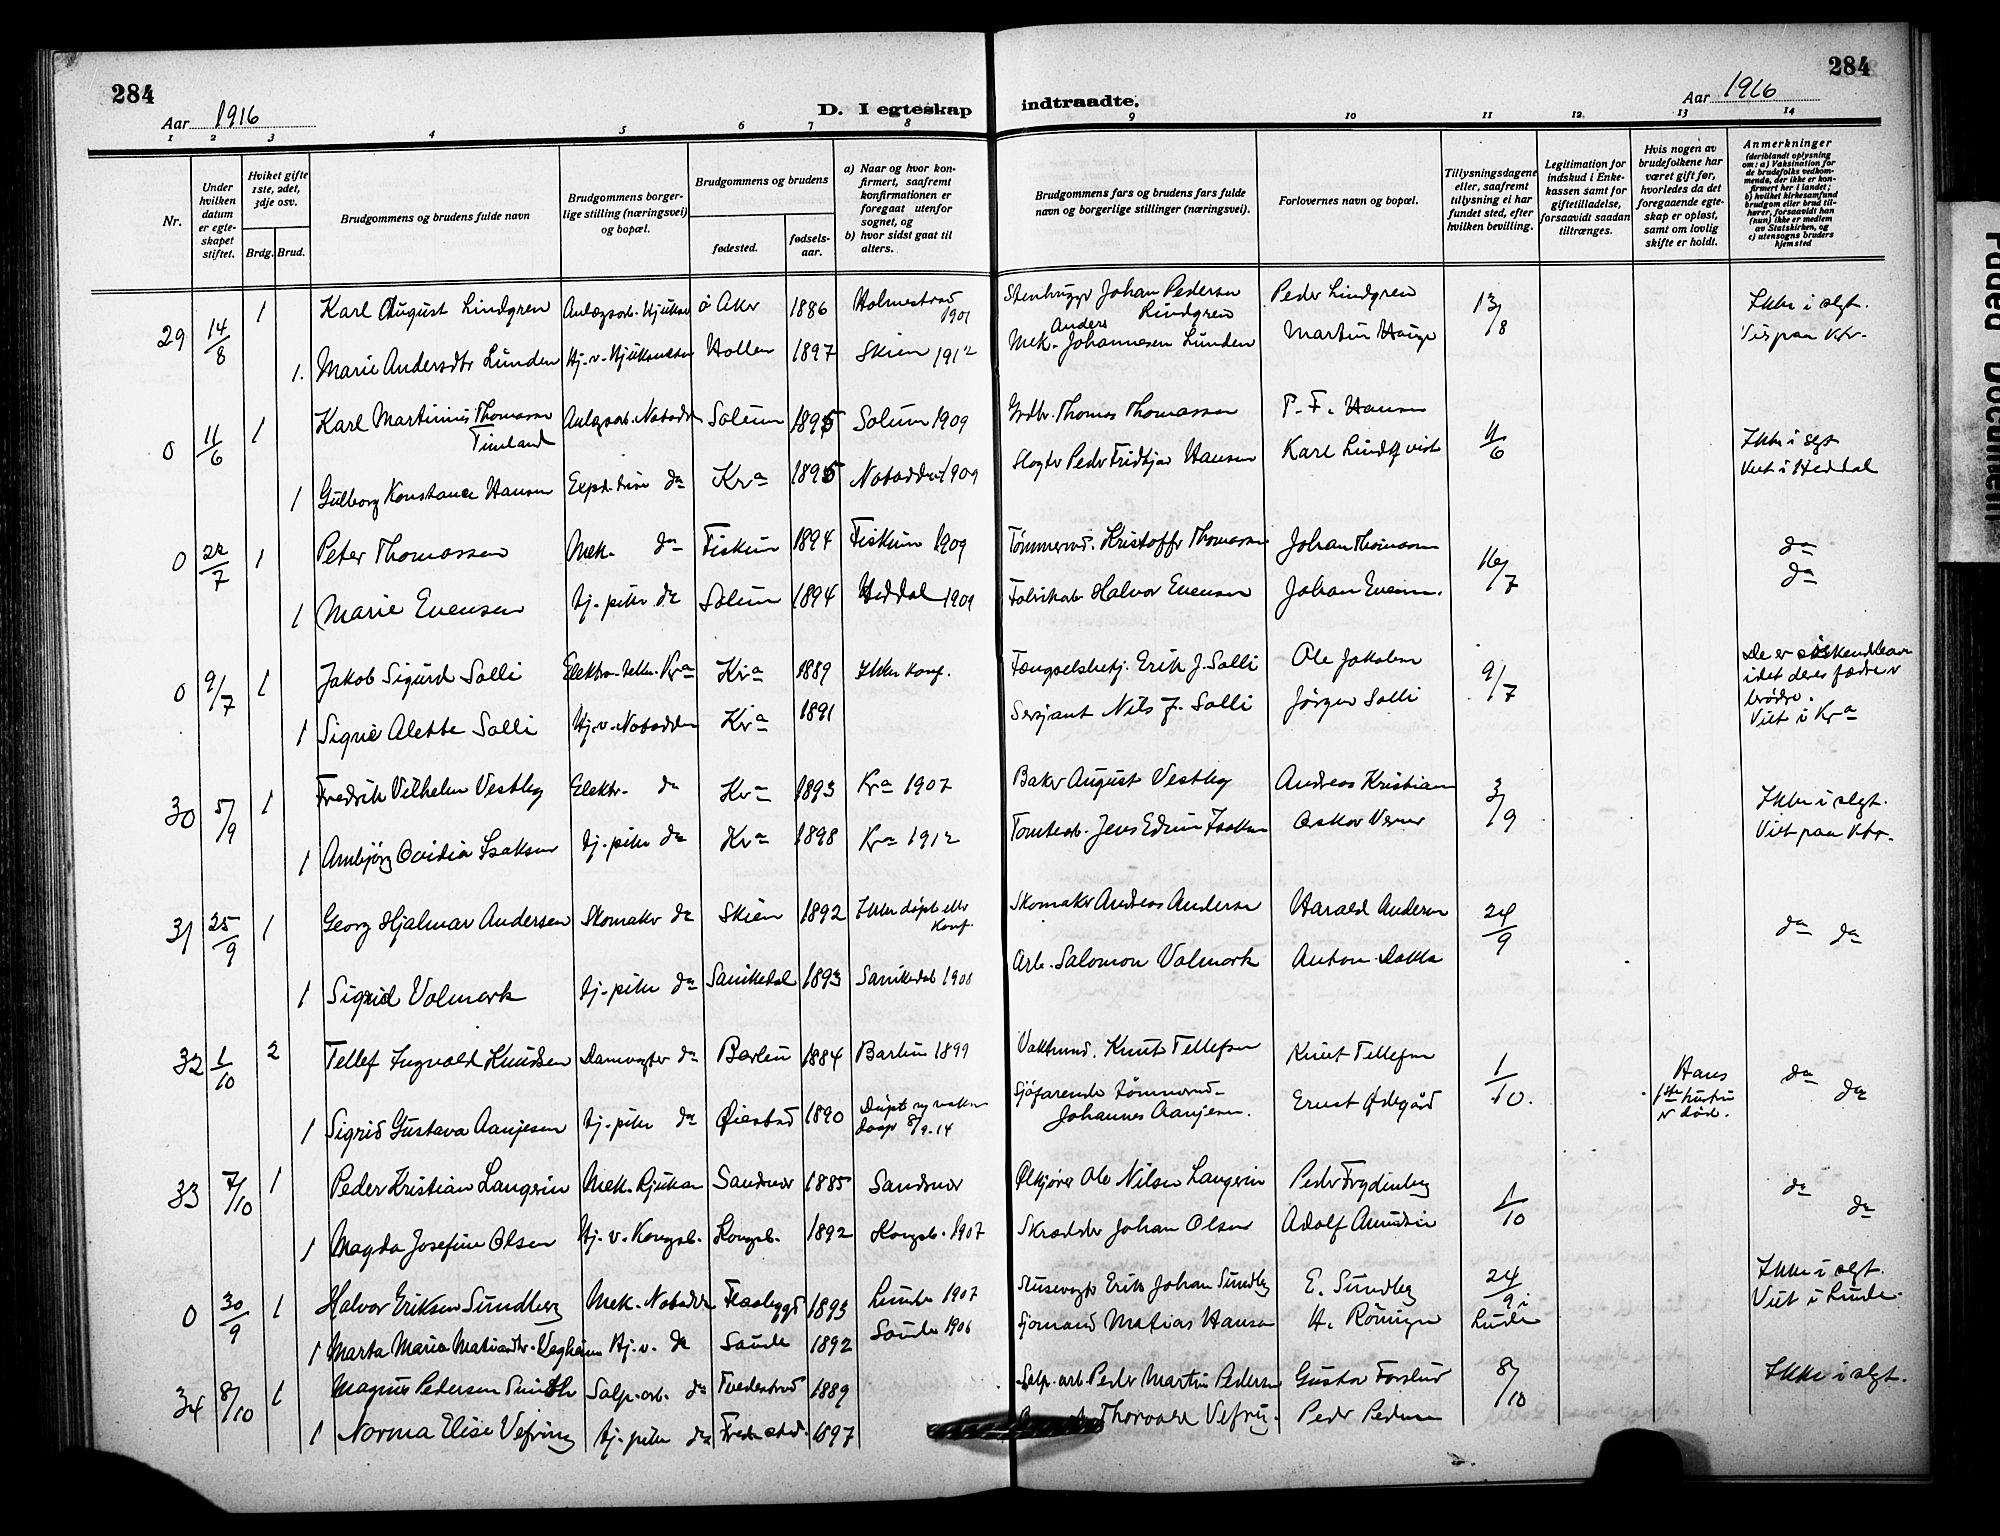 284
Aar 1916
D. I egteskap
indtraadte.
Aar 1916
284
1 2 3 4 5 6 7 8 9 10 11 12. 13 14
Nr.
Under hvilken datum er egteskapet stiftet.
Hviket gifte 1ste, 2det, 3dje osv.
Brdg. Brud.
Brudgommens og brudens fulde navn
Brudgommens borgerlige stilling (næringsvei) og bopæl.
Brudgommens og brudens
fødested.
fødselsaar.
a) Naar og hvor konfirmert, saafremt konfirmationen er foregaat utenfor sognet, og
b) hvor sidst gaat til alters.
Brudgommens fars og brudens fars fulde navn og borgerlige stillinger (næringsvei).
Forlovernes navn og bopæl.
Tillysningsdagene eller, saafremt tillysning ei har fundet sted, efter hvilken bevilling.
Legitimation for indskud i Enkekassen samt for giftetilladelse, forsaavidt saadan tiltrænges.
Hvis nogen av brudefolkene har været gift før, hvorledes da det foregaaende egteskap er opløst, samt om lovlig skifte er holdt.
Anmerkninger (deriblandt oplysning om: a) Vaksination for de brudefolks vedkommende, der ikke er konfirmert her i landet; b) hvilket kirkesamfund brudgom eller brud tilhører, forsaavidt han (hun) ikke er medlem av Statskirken, og c) utensogns bruders hjemsted
29 14/8 1 Karl August Lindgren Anlægsarb. Rjukan Aker 1886 Holmestrand 1901 Stenhugger Johan Pedersen Lindgren Peder Lindgren 13/8 Ikke i slgt.
1. Marie Andersdtr Lunden Hj. v. Hollen 1897 Skien 1912 Mek. Anders Johannesen Lunden Martin Hauge Vis paa Ktr.
0 11/6 1 Karl Martinius Thomassen Timland Anlægsarb. Notodden Solum 1895 Solum 1909 Grdbr. Thomas Thomassen P. F. Hansen 11/6 Ikke i slgt
1 Gulborg Konstance Hansen da Kra 1895 Notodden 1909 Slagter Peder Fridtjov Hansen Karl Lindqvist Viet i Heddal
0 22/7 1 Peter Thomassen Mek. da Fiskum 1894 Fiskum 1909 Tømmermd. Kristoffer Thomassen Johan Thomassen 16/7 da
1 Marie Evensen Hj. pike da Solum 1894 Heddal 1909 Fabrikarb. Halvor Evensen Johan Evensen. da
0 9/7 1 Jakob Sigurd Solli Elektro. Kra Kra 1889 Ikke konf. Fængselsbetj. Erik J. Solli Ole Jakobsen 9/7 De er søskendebarn idet deres fædre er brødre.
1 Signe Alette Solli Hj. v. Notodden Kra 1891 Sersjant Nils J. Solli Jörgen Solli Viet i Kra
30 5/9 1 Fredrik Vilhelm Vestby Elektr. da Kra 1893 Kra 1907 Baker August Vestby Andreas Kristian 3/9 Ikke i slgt.
1 Arnbjörg Ovidia Isaksen Hj. pike da Kra 1898 Kra 1912 Tomtearb. Jens Edvin Isaksen Oskar Viet paa Ktr.
31 25/9 1 Georg Hjalmar Andersen Skomaker da Skien 1892 Ikke døpt eller konf. Skomaker Andreas Andersen Harald Andersen 24/9 da da
1 Sigrid Valmork Hj. pike da Sanikedal 1893 Sanikedal 1908 Arb. Salomon Valmork Anton Dokka
32 1/10 2 Tellef Ingvald Knudsen Damvogter da Barbu 1884 Barbu 1899 Vaktmd. Knut Tellefsen Knut Tellefsen 1/10. Hans 1ste hustru er død. da
1 Sigrid Gustava Aanjesen Hj. pike da Øiestad 1890 Døpt ny daap 8/9-14 Sjöfarende tömmermd. Johannes Aanjesen. Ernst Ødegård da
33 7/10 1 Peder Kristian Langerin Mek. Rjukan Sandsvær 1885 Sandsvær Ølkjører Ole Nilsen Langerin Peder Frydenberg 1/10 da
1 Magda Josefine Olsen Hj. v. Kongsb. Kongsb. 1892 Kongsb. 1907 Skrædder Johan Olsen Adolf Amundsen da
0 30/9 1 Halvor Eriksen Sundberg Mek. Notodden Flaabygd 1893 Lunde 1907 Slusevogter Erik Johan Sundberg E. Sundberg 24/9 i Lunde Ikke i slgt.
1 Marta Marie Hj. v. da Saude 1892 Saude 1906 Sjömand Matias Hansen H. Viet i Lunde.
34 8/10 1 Magnus Pedersen Smidth Salp. arb. da Tvedestrand 1889 Salp. arb. Peder Martin Pedersen Gustav Forslund 8/10 Ikke i slgt.
1 Norma Elise Vefring Hj. pike da Fredr.stad. 1897 Thorvald Vefring. Peder Pedersen
Faded Document